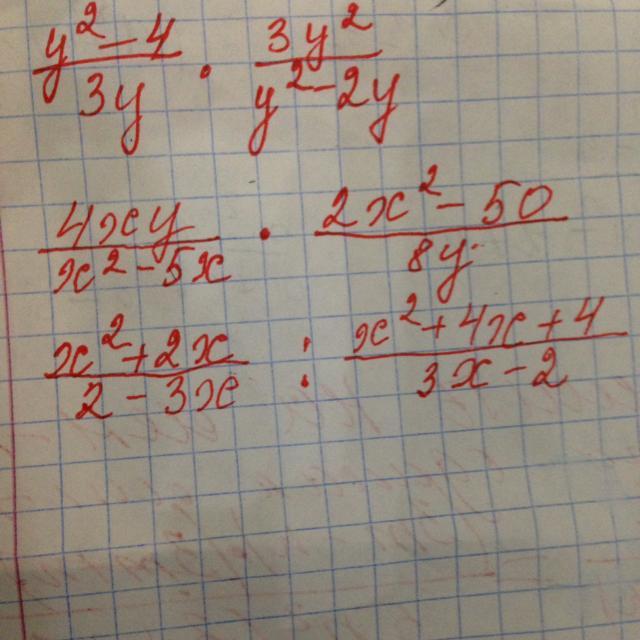 y² - 4 / 3y · 3y² / y² - 2y
4xy / x² - 5x · 2x² - 50 / 8y
x² + 2x / 2 - 3x : x² + 4x + 4 / 3x - 2